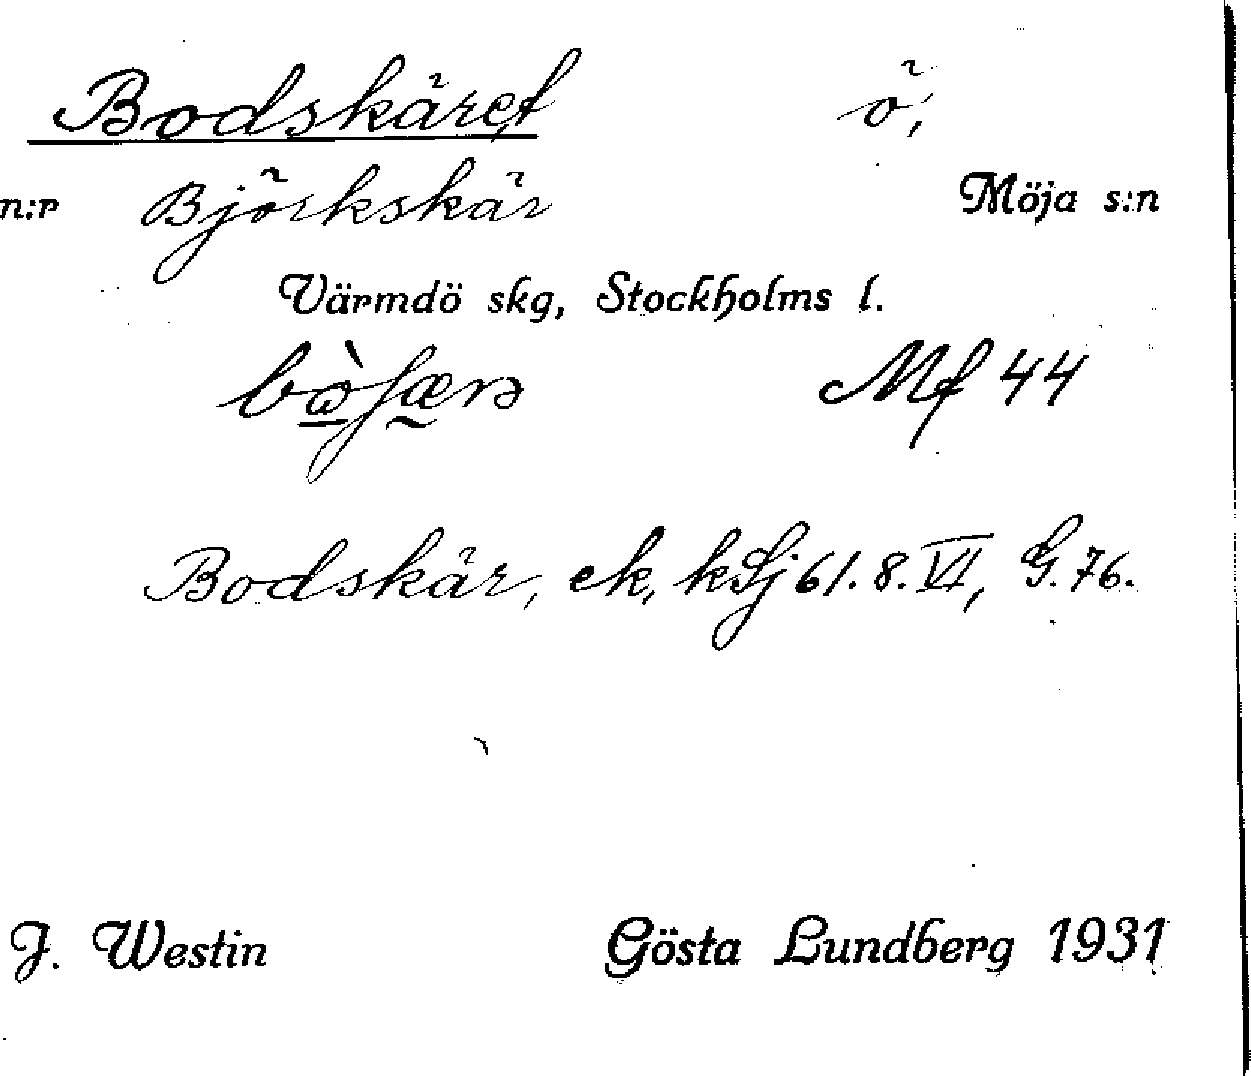 Bodskäret ö,
n:r Björkskär Möja s:n
Värmdö skg, Stockholms l.
Mf 44
Bodskär, ek, kSj 61. 8. VI, G. 76.
J. Westin Gösta Lundberg 1931